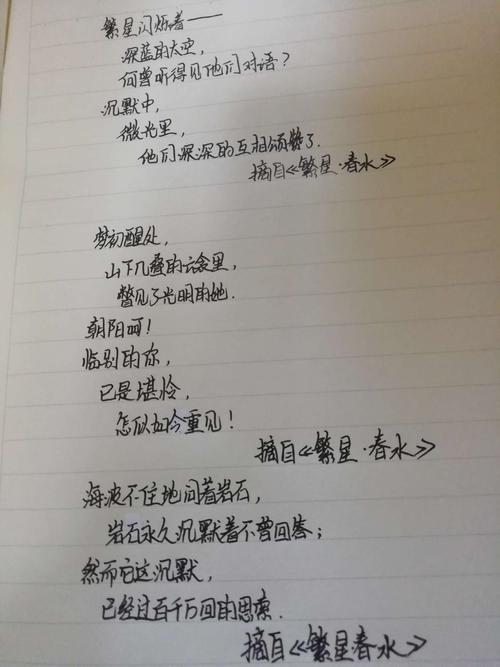 繁星闪烁着——
深蓝的太空，
何曾听得见他们对语？
沉默中，
微光里，
他们深深的互相颂赞了．
摘自《繁星·春水》
梦初醒处，
山下几叠的云衾里，
瞥见了光明的她．
朝阳呵！
临别的你，
已是堪怜，
怎似如今重见！
摘自《繁星·春水》
海波不住地问着岩石，
岩石永久沉默着不曾回答；
然而它这沉默，
已经过百千万回的思索．
摘自《繁星·春水》